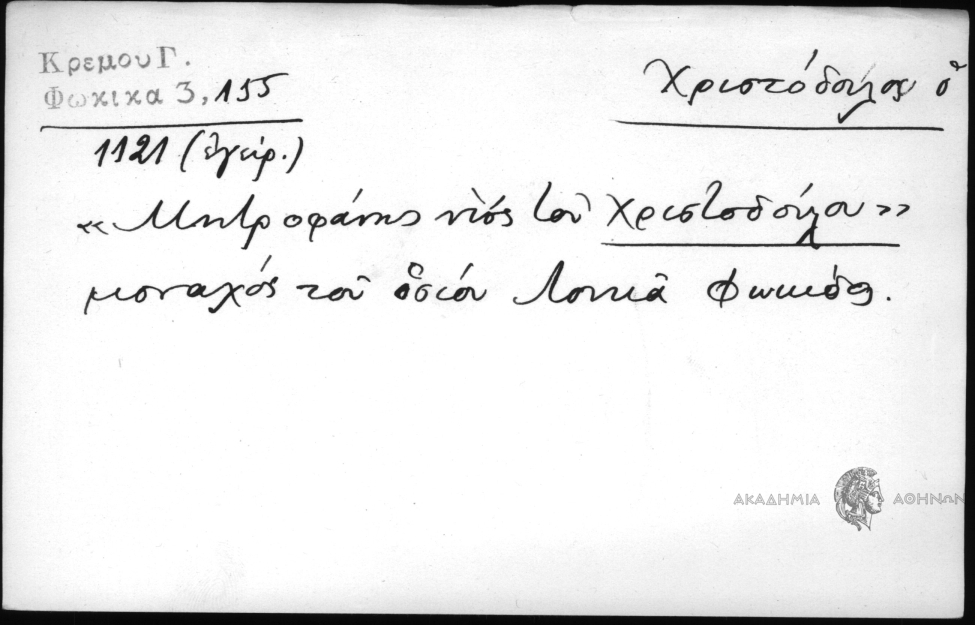 Κρεμου Γ.
Φωκικα 3, 155
Χριστόδουλος ὁ
1121 (ἐγχειρ.)
«Μητροφάνης υἱὸς τοῦ Χριστοδούλου»
μοναχός τοῦ ὁσίου Λουκᾶ Φωκίδος.
ΑΚΑΔΗΜΙΑ ΑΘΗΝΩΝ